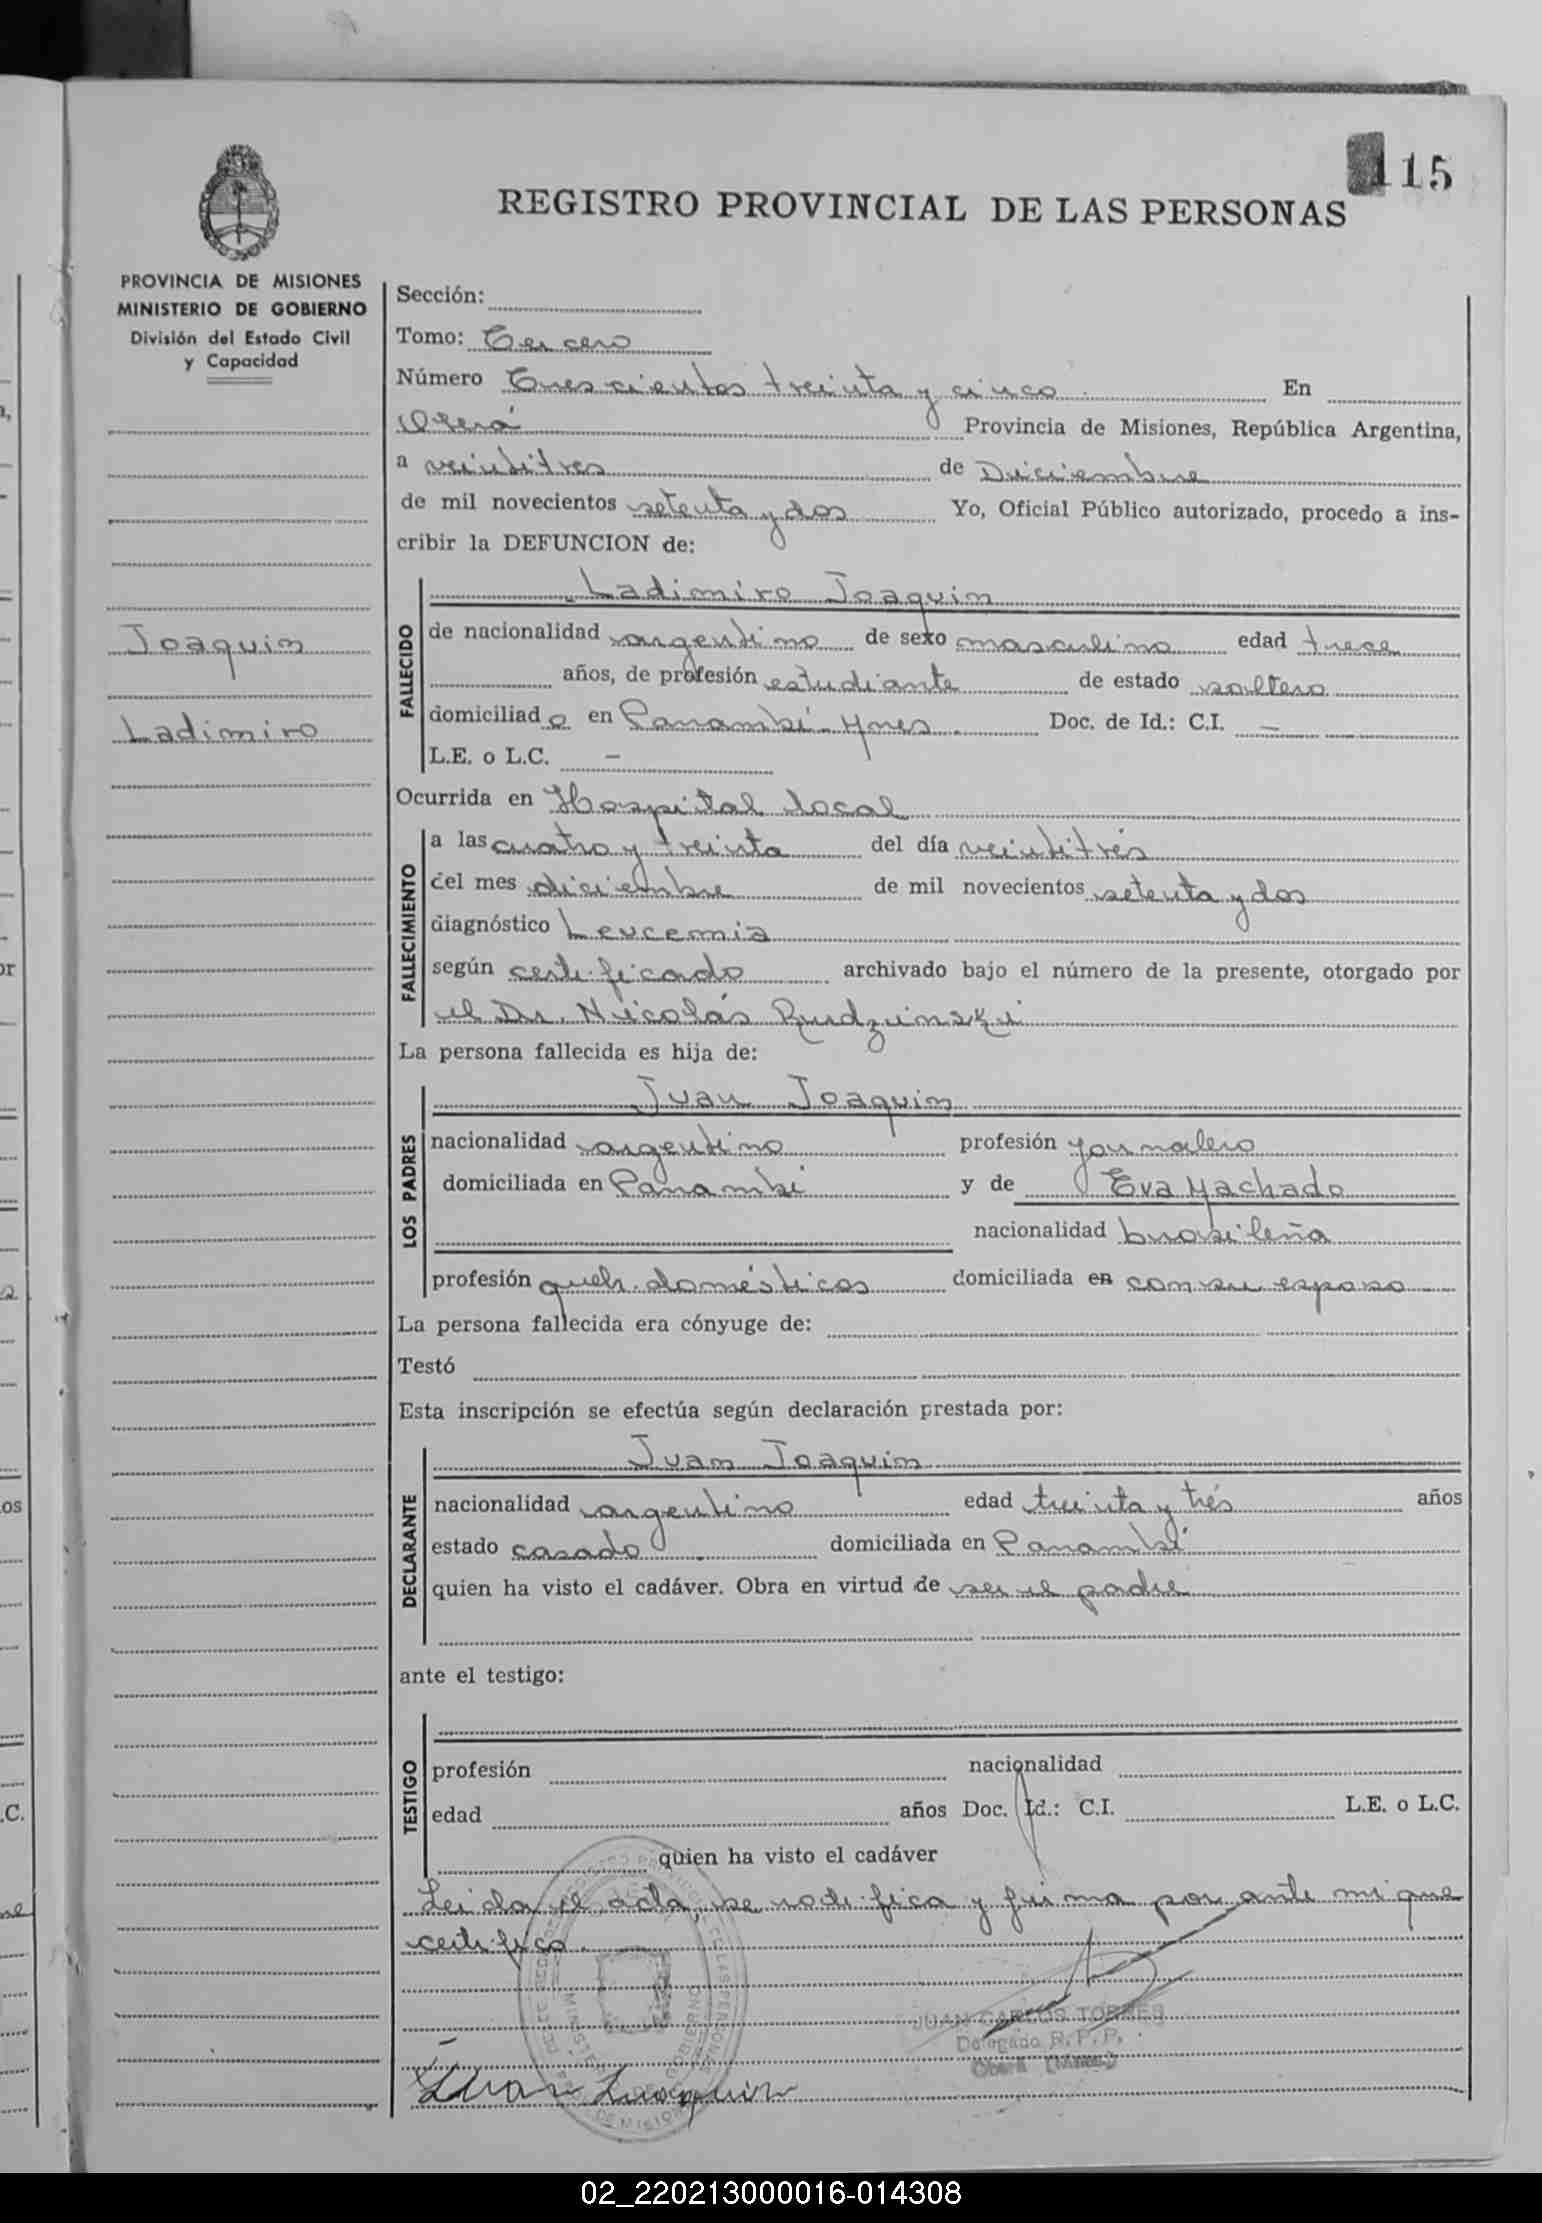 115
REGISTRO PROVINCIAL DE LAS PERSONAS
PROVINCIA DE MISIONES
MINISTERIO DE GOBIERNO
División del Estado Civil
y Capacidad
Joaquin
Ladimiro
Sección:
Tomo: Tercero
Número Trescientos treinta y cinco En
Oberá Provincia de Misiones, República Argentina,
a veintitres de Diciembre
de mil novecientos setenta y dos Yo, Oficial Público autorizado, procedo a ins-
cribir la DEFUNCION de:
FALLECIDO
Ladimiro Joaquin
de nacionalidad argentino de sexo masculino edad trece
años, de profesión estudiante de estado soltero
domiciliado en Panambí-Mnes. Doc. de Id.: C.I. —
L.E. o L.C. —
Ocurrida en Hospital local
FALLECIMIENTO
a las cuatro y treinta del día veintitrés
del mes diciembre de mil novecientos setenta y dos
diagnóstico Leucemia
según certificado archivado bajo el número de la presente, otorgado por
el Dr. Nicolás Rudzinski
La persona fallecida es hija de:
LOS PADRES
Juan Joaquin
nacionalidad argentino profesión jornalero
domiciliada en Panambí y de Eva Machado
nacionalidad brasileña
profesión queh. domésticos domiciliada en con su esposo
La persona fallecida era cónyuge de:
Testó
Esta inscripción se efectúa según declaración prestada por:
DECLARANTE
Juan Joaquin
nacionalidad argentino edad treinta y trés años
estado casado domiciliada en Panambí
quien ha visto el cadáver. Obra en virtud de ser el padre
ante el testigo:
TESTIGO
profesión nacionalidad
edad años Doc. Id.: C.I. L.E. o L.C.
quien ha visto el cadáver
Leida el acta, se ratifica y firma por ante mi que
certifico.
JUAN CARLOS TORRES
Delegado R.P.P.
Oberá (Mnes.)
Juan Juaquin
02_220213000016-014308